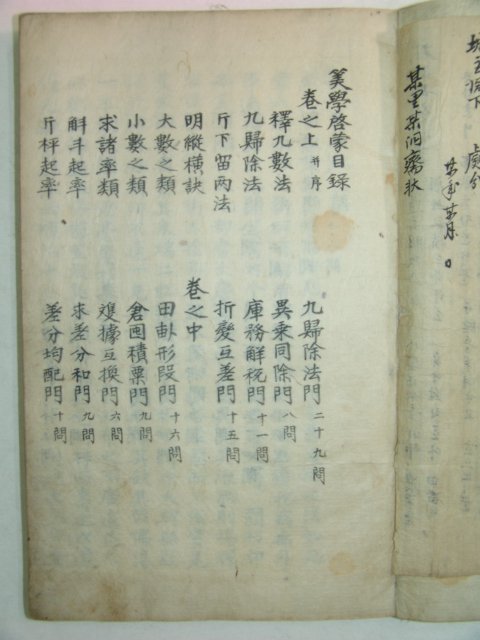 某里某洞
某年某月 日
算學啓蒙目錄
卷之上 并序
釋九數法
九歸除法
斤下留兩法
明縱橫訣
大數之類
小數之類
求諸率類
斛斗起率
斤秤起率
九歸除法門 二十九問
異乘同除門 八問
庫務解稅門 十一問
折變互差門 十五問
卷之中
田畝形段門 十六問
倉囤積粟門 九問
雙據互換門 六問
求差分和門 九問
差分均配門 十問